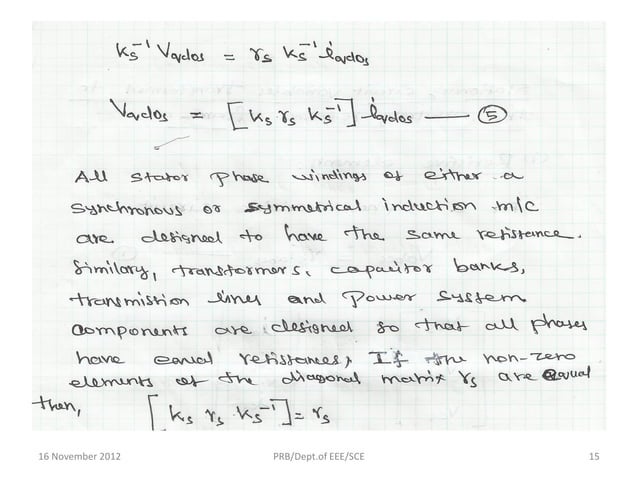 Ks⁻¹ Vqdos = rs Ks⁻¹ iqdos
Vqdos = [Ks rs Ks⁻¹] iqdos —— ⑤
All stator phase windings of either a
synchronous or symmetrical induction m/c
are designed to have the same resistance.
Similary, transformers, capacitor banks,
transmistion lines and Power System
components are designed so that all phases
have equal resistances, If the non-zero
elements of the diagonal matrix rs are equal
then, [Ks rs Ks⁻¹] = rs
16 November 2012 PRB/Dept.of EEE/SCE 15